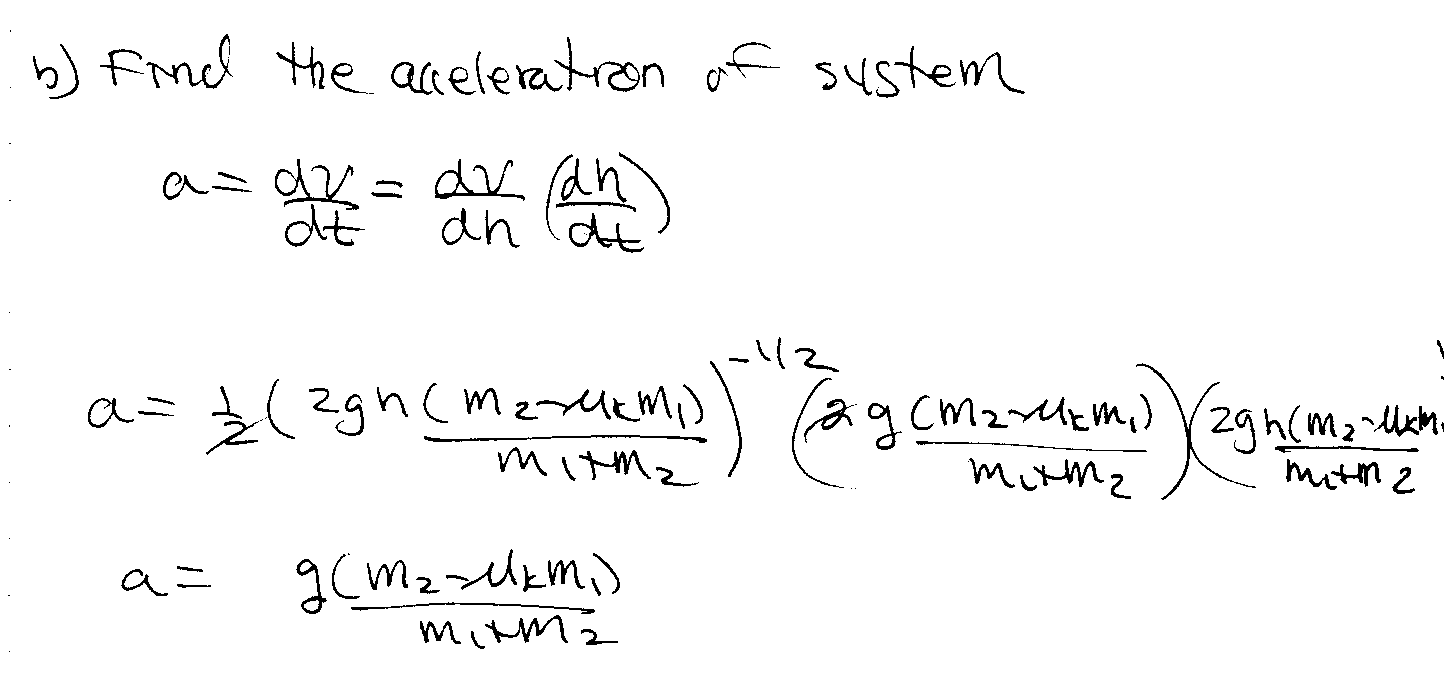 b) Find the acceleration of system
a = dv/dt = dv/dh (dh/dt)
a = 1/2 (2gh (m₂-μₖm₁)/(m₁+m₂))^(-1/2) (2g (m₂-μₖm₁)/(m₁+m₂)) (2gh (m₂-μₖm₁)/(m₁+m₂)
a = g(m₂-μₖm₁)/(m₁+m₂)